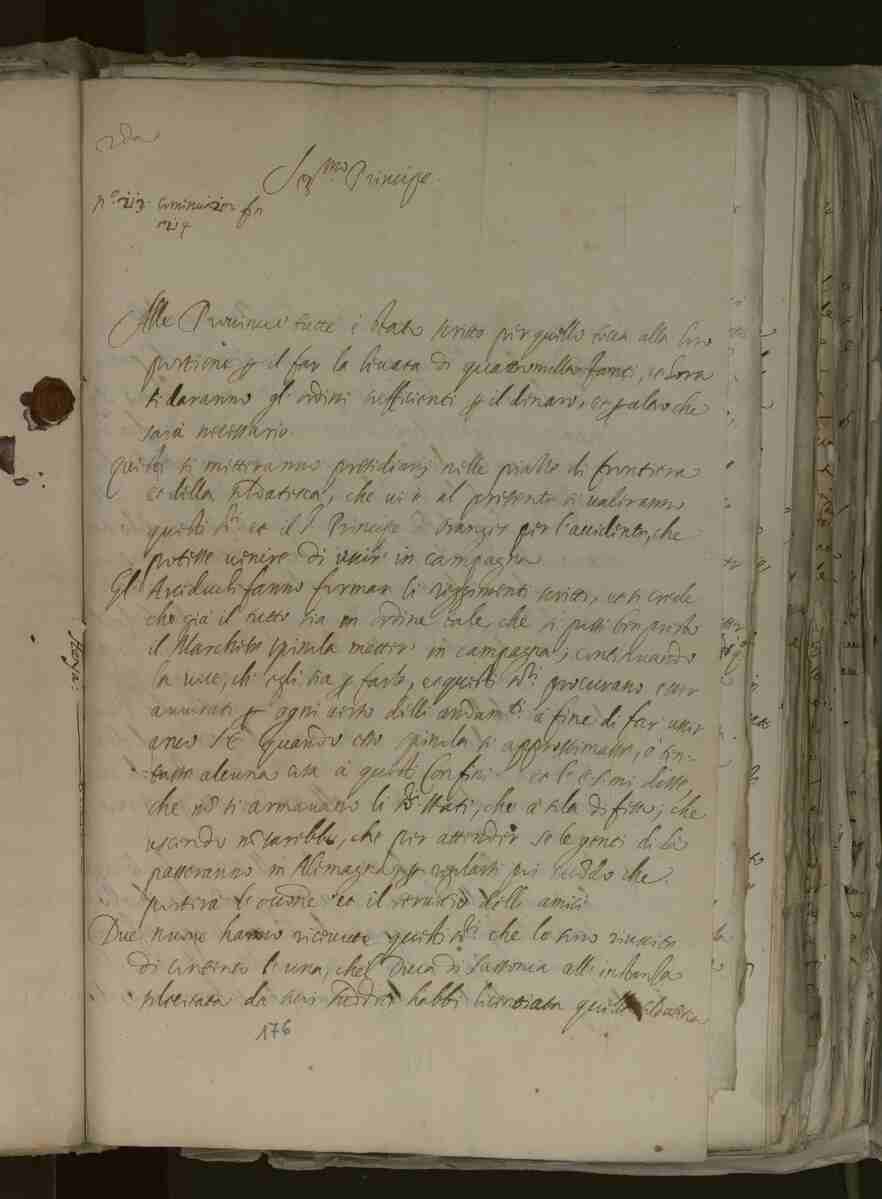 2da
Ser.mo Principe
n.o 213. comincia fin
214
Alle Provincie tutte è stato scritto per quello tocca alla loro
portione per il far la levata di quattromilla fanti, et hora
si daranno gl'ordini sufficienti per il dinaro, et per altro che
sarà necessario.
Questi si metteranno presidiarij nelle piazze di frontiera
et della soldatesca, che vi è al presente si valeranno
questi SS.ri et il S.r Principe d'Oranges per l'accidente, che
potesse venire di uscir in campagna
Gl'Arciduchi fanno formar li reggimenti scritti, et si crede
che già il tutto sia in ordine tale, che si possi ben presto
il Marchese Spinola metter in campagna; continuando
la voce, ch'egli sia per farlo, et questi SS.ri procurano esser
avvisati per ogni verso delli andam.ti à fine di far uscir
anco S.E. quando esso Spinola si approssimasse, ò ten-
tasse alcuna cosa à questi confini et l'E.S. mi disse,
che non si armavano li SS.ri Stati, che à tela di fitto; che
uscendo non sarebbe, che per attender se le genti di là
passeranno in Alemagna per regolarsi poi secondo che
portirà l'occ.ne et il servitio delli amici
Due nuove hanno ricevute questi SS.ri che le sono riuscite
di contento l'una, chel Duca di Sassonia all'instanza
de suoi sudditi habbi licentiata quella soldatesca
176